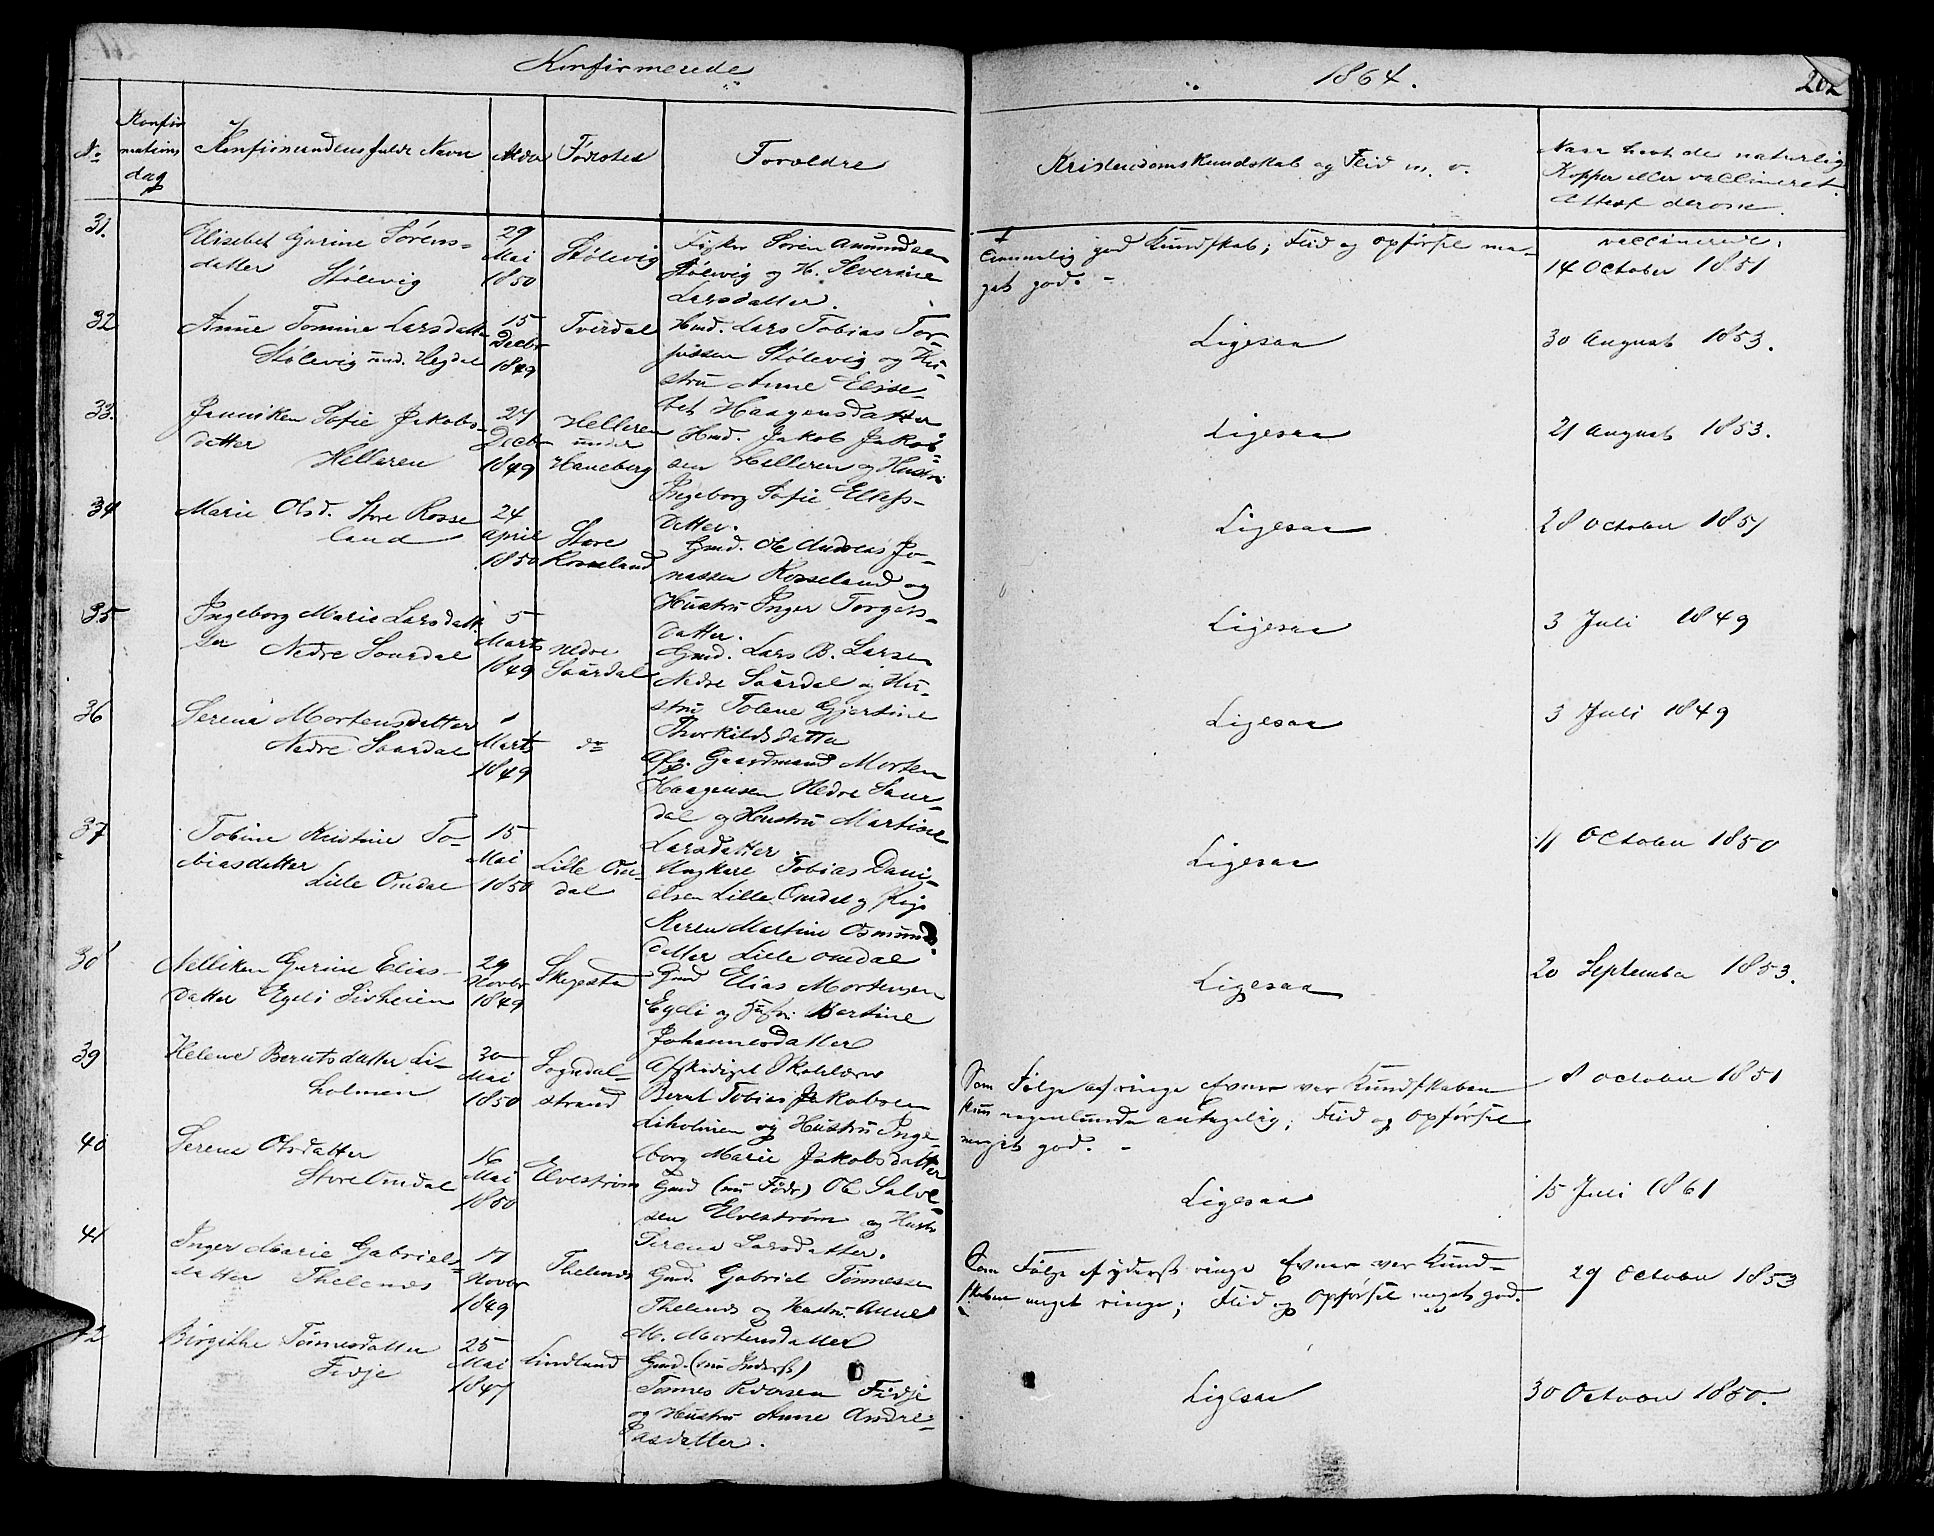 Konfirmerede 1864. 202
No Konfir mations dag Konfirmandens fulde Navn Alder Fødested Forældre Kristendomskundskab og Flid m. v. Naar havt de naturlig Kopper eller vaccineret. Attest derom.
31. Elisebet Gurine Sørens-
datter Stølevig
29 Mai 1850
Stølevig
Søren Amundsen
Stølevig og H. Severine
Larsdatter.
Temmelig god Kundskab; Flid og Opførsel me-
get god. -
vaccinerede,
14 October 1851
32 Anne Tomine Larsdatter
Stølevig und. Hegdal
15 Decbr 1849
Tverdal
Hmd. Lars Tobias Tor-
jussen Stølevig og Hu-
stru Anne Elise-
bet Haagensdatter
Ligesaa
30 August 1853.
33. Janniken Sofie Jakobs-
datter
Helleren
27 Decbr 1849
Helleren
under
Haneberg
Hmd. Jakob Jakob-
sen Helleren og Hustru
Ingeborg Sofie Eliass-
datter.
Ligesaa
21 August 1853.
34 Marie Olsd. Store Rosse
land
24 April 1850
Store
Rosseland
Gmd. Ole Andreas Jo-
nassen Rosseland og
Hustru Inger Torgers-
datter.
Ligesaa
28 October 1851
35 Ingeborg Marie Larsdatt
ter Nedre Saurdal
5 Marts 1849
Nedre
Saurdal
Gmd. Lars B. Larsen
Nedre Saurdal og Hu-
stru Tolene Gjertine
Thorkildsdatter
Ligesaa
3 Juli 1849
36 Serena Mortensdatter
Nedre Saurdal
1 Marts 1849
do
Gaardmand Morten
Haagensen Nedre Saur-
dal og Hustru Martine
Larsdatter
Ligesaa
3 Juli 1849
37 Tobine Kristine To-
biasdatter
Lille Omdal
15 Mai 1850
Lille Om-
dal
Ungkarl Tobias Dani-
elsen Lille Omdal og Pige
Karen Martine Osmunds-
datter Lille Omdal
Ligesaa
11 October 1850
38 Nelliken Gurine Elias-
datter Egeli
29 Novbr 1849
Skegesta
Gmd Elias Mortensen
Egeli og Hustru Bertine
Johannesdatter
Ligesaa
20 September 1853.
39 Helene Berntsdatter Li-
holmen
30 Mai 1850
Sogndal-
strand
Afskediget Skolelærer
Bernt Tobias Jakobsen
Liholmen og Hustru Inge-
borg Marie Jakobsdatter
Som Følge af ringe Evner var Kundskaben
kun nogenlunde antagelig; Flid og Opførsel
meget god. -
8 October 1851
40 Serena Olsdatter
Store Omdal
16 Mai 1850
Elvestrøm
Gmd (nu Føder) Ole Salve-
sen Elvestrøm og Hustru
Serena Larsdatter.
Ligesaa
15 Juli 1861
41 Inger Marie Gabriels-
datter Thelenes
17 Novbr 1849
Thelenes
Gmd. Gabriel Tønnesen
Thelenes og Hustru Anne
M. Mortensdatter
Som Følge af yderst ringe Evner var Kund-
skaben meget ringe; Flid og Opførsel meget god.
29 October 1853
42 Birgithe Tønnesdatter
Fidje
25 Mai 1847
Lindland
Gmd. (nu Inderst)
Tønnes Pedersen Fidje
og Hustru Anne Andre-
asdatter.
Ligesaa
30 October 1850.